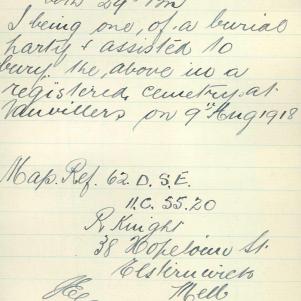 29th Bn
I being one, of a burial
party & assisted to
bury the above in a
registered cemetry at
Vauvillers on 9th Aug 1918
Map. Ref. 62. D. S. E.
11.C. 35.20
R Knight
38 Hopetoun St.
Elsternwick
Melb